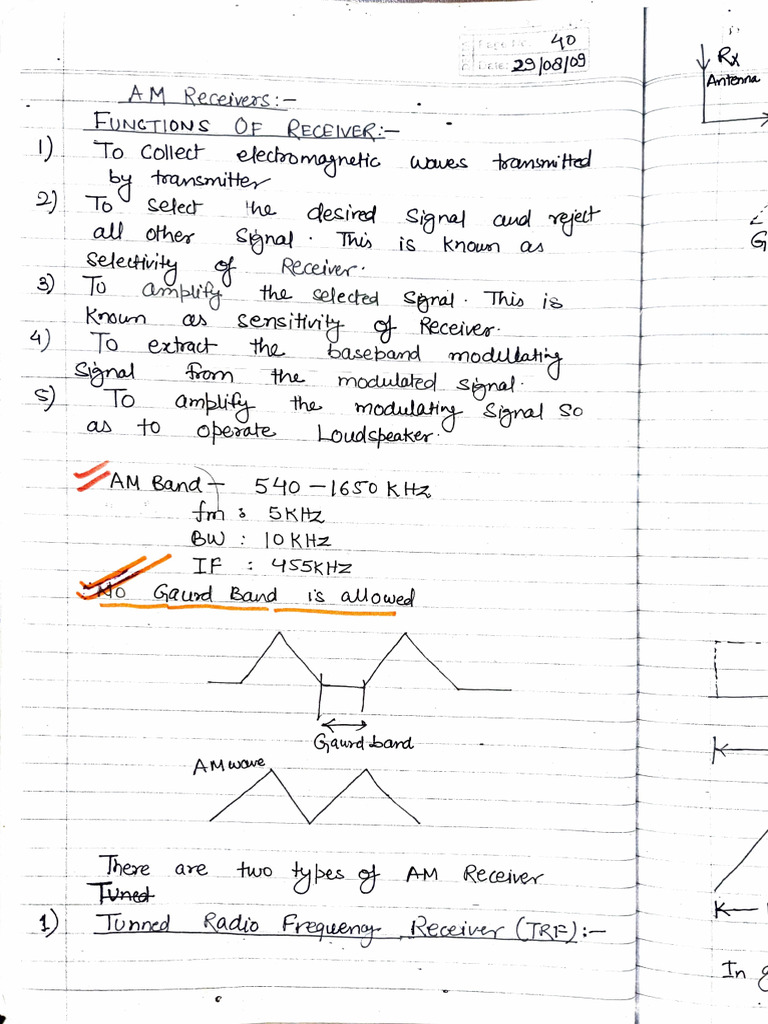 Page No. 40
Date: 29/08/09
AM Receivers:-
FUNCTIONS OF RECEIVER:-
1) To Collect electromagnetic waves transmitted
by transmitter
2) To select the desired signal and reject
all other signal. This is known as
selectivity of Receiver.
3) To amplify the selected signal. This is
known as sensitivity of Receiver.
4) To extract the baseband modullating
signal from the modulated signal.
5) To amplify the modulating signal so
as to operate Loudspeaker.
AM Band - 540 - 1650 KHz
fm : 5KHz
BW : 10KHz
IF : 455KHz
No Gaurd Band is allowed
Gaurd band
AM wave
There are two types of AM Receiver
Tuned
1) Tunned Radio Frequency Receiver (TRF):-
Rx
Antenna
G
In